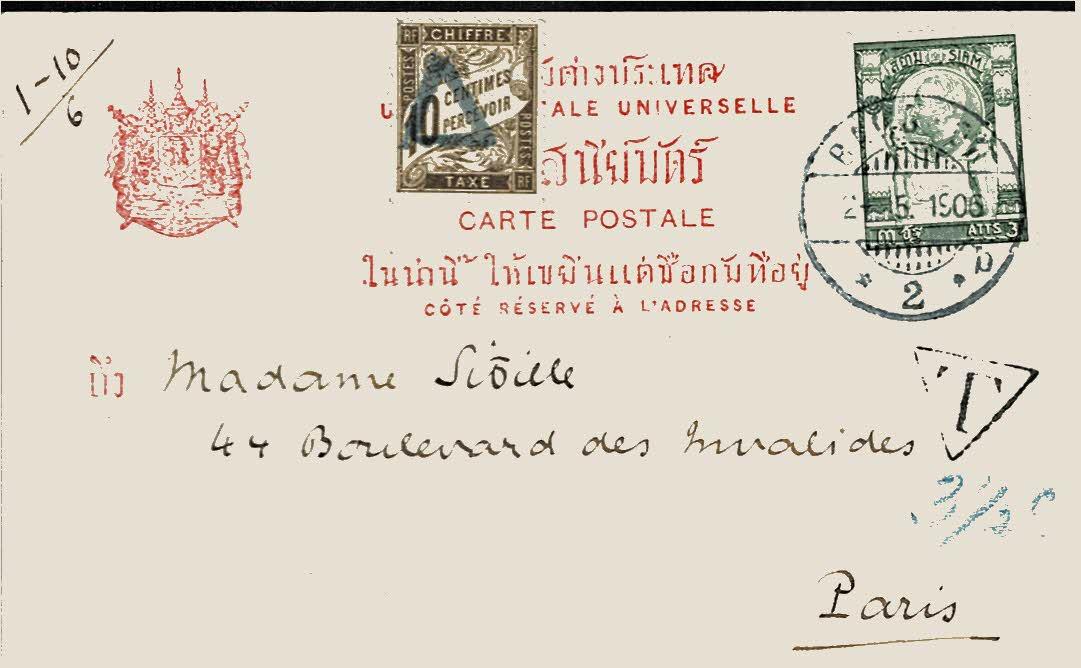 1-10
6
RF CHIFFRE
POSTES
10 CENTIMES
PERCEVOIR
POSTES
TAXE RF
ต่างประเทศ
U ALE UNIVERSELLE
CARTE POSTALE
ในน่านี้ ให้เขยีนแต่ชื่อกับที่อยู่
CÔTÉ RÉSERVÉ À L'ADRESSE
สยาม SIAM
ATTS 3
5. 1906
2 b
ถึง Madame Sibille
44 Boulevard des Invalides
T
3½ c
Paris